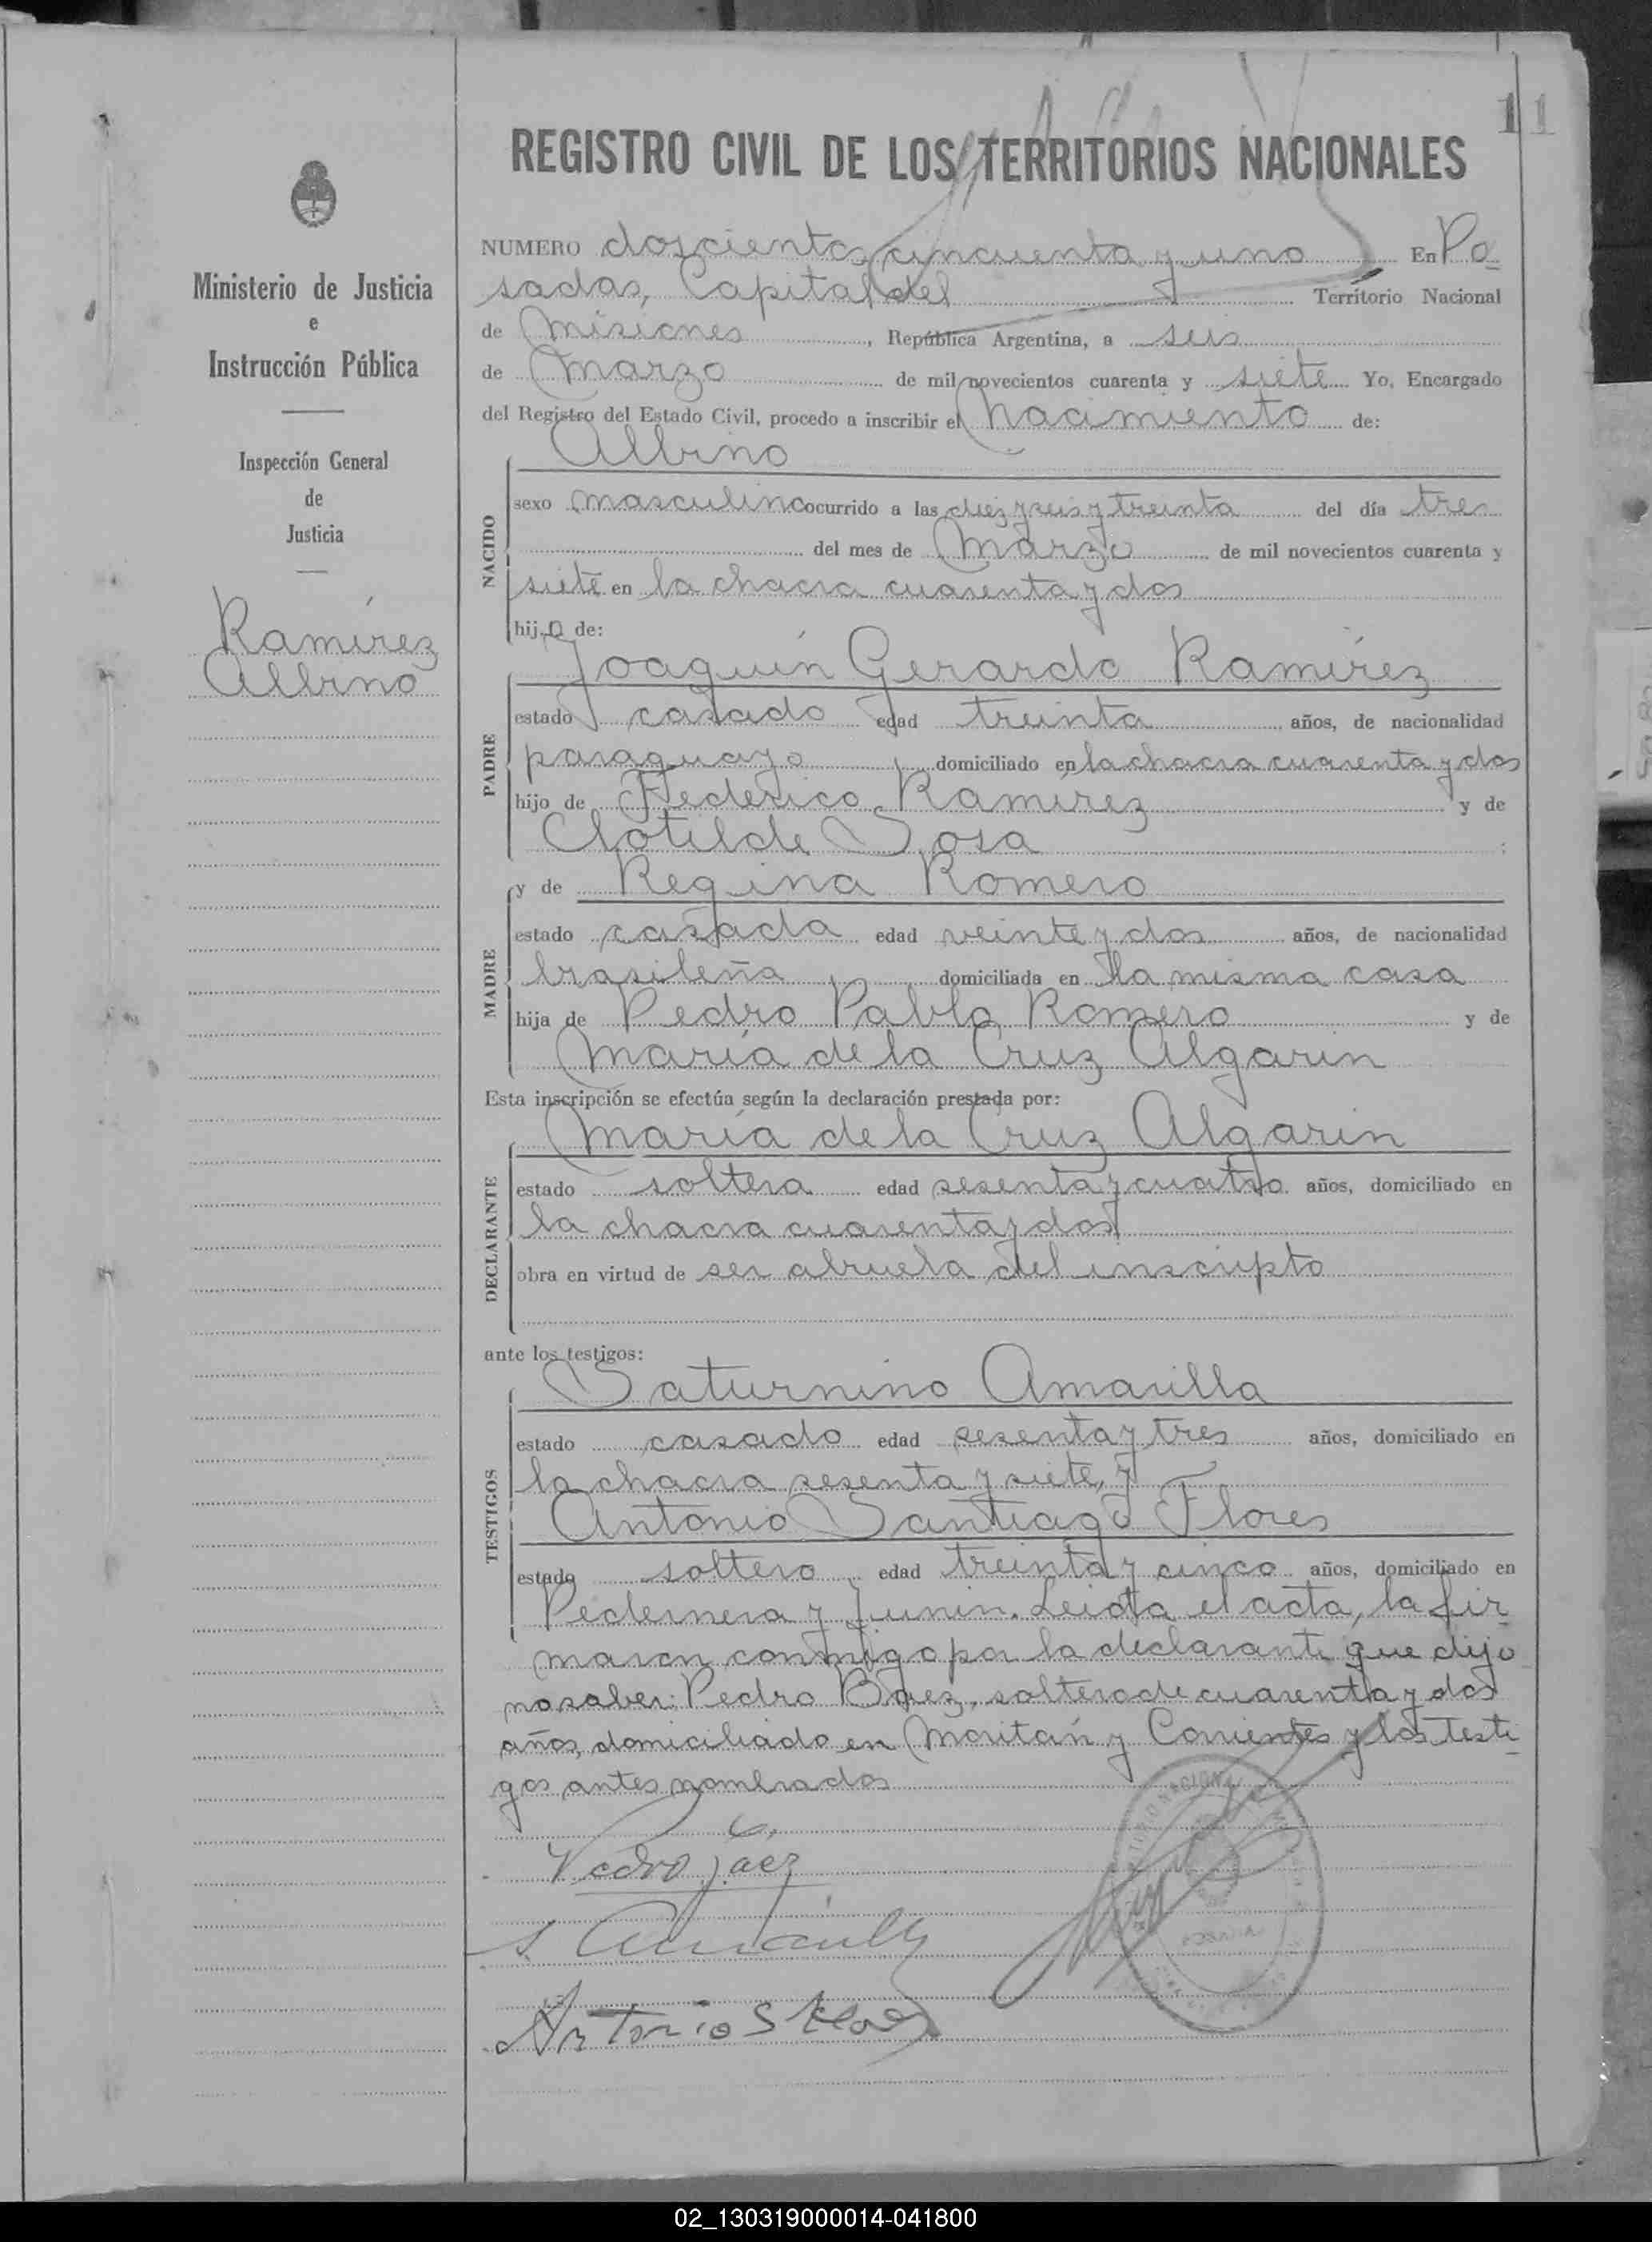 11
REGISTRO CIVIL DE LOS TERRITORIOS NACIONALES
Ministerio de Justicia
e
Instrucción Pública
Inspección General
de
Justicia
Ramírez
Albino
NUMERO doscientos cincuenta y uno En Po
sadas, Capital del Territorio Nacional
de Misiones, República Argentina, a seis
de Marzo de mil novecientos cuarenta y siete Yo, Encargado
del Registro del Estado Civil, procedo a inscribir el Nacimiento de:
Albino
NACIDO
sexo masculino ocurrido a las diez y seis y treinta del día tres
del mes de Marzo de mil novecientos cuarenta y
siete en la chacra cuarenta y dos
hijo de:
Joaquín Gerardo Ramírez
PADRE
estado casado edad treinta años, de nacionalidad
paraguayo domiciliado en la chacra cuarenta y dos
hijo de Federico Ramirez y de
Clotilde Sosa ;
MADRE
y de Regina Romero
estado casada edad veinte y dos años, de nacionalidad
brasileña domiciliada en la misma casa
hija de Pedro Pablo Romero y de
María de la Cruz Algarin
Esta inscripción se efectúa según la declaración prestada por:
María de la Cruz Algarin
DECLARANTE
estado soltera edad sesenta y cuatro años, domiciliado en
la chacra cuarenta y dos
obra en virtud de ser abuela del inscripto
ante los testigos:
Saturnino Amarilla
TESTIGOS
estado casado edad sesenta y tres años, domiciliado en
la chacra sesenta y siete, y
Antonio Santiago Flores
estado soltero edad treinta y cinco años, domiciliado en
Pedernera y Junin. Leida el acta, la fir
maron conmigo por la declarante que dijo
no saber: Pedro Báez, soltero de cuarenta y dos
años, domiciliado en Moritán y Corrientes y los testi
gos antes nombrados
Pedro Báez
S Amarilla
Antonio S Flores
POSADAS
02_130319000014-041800